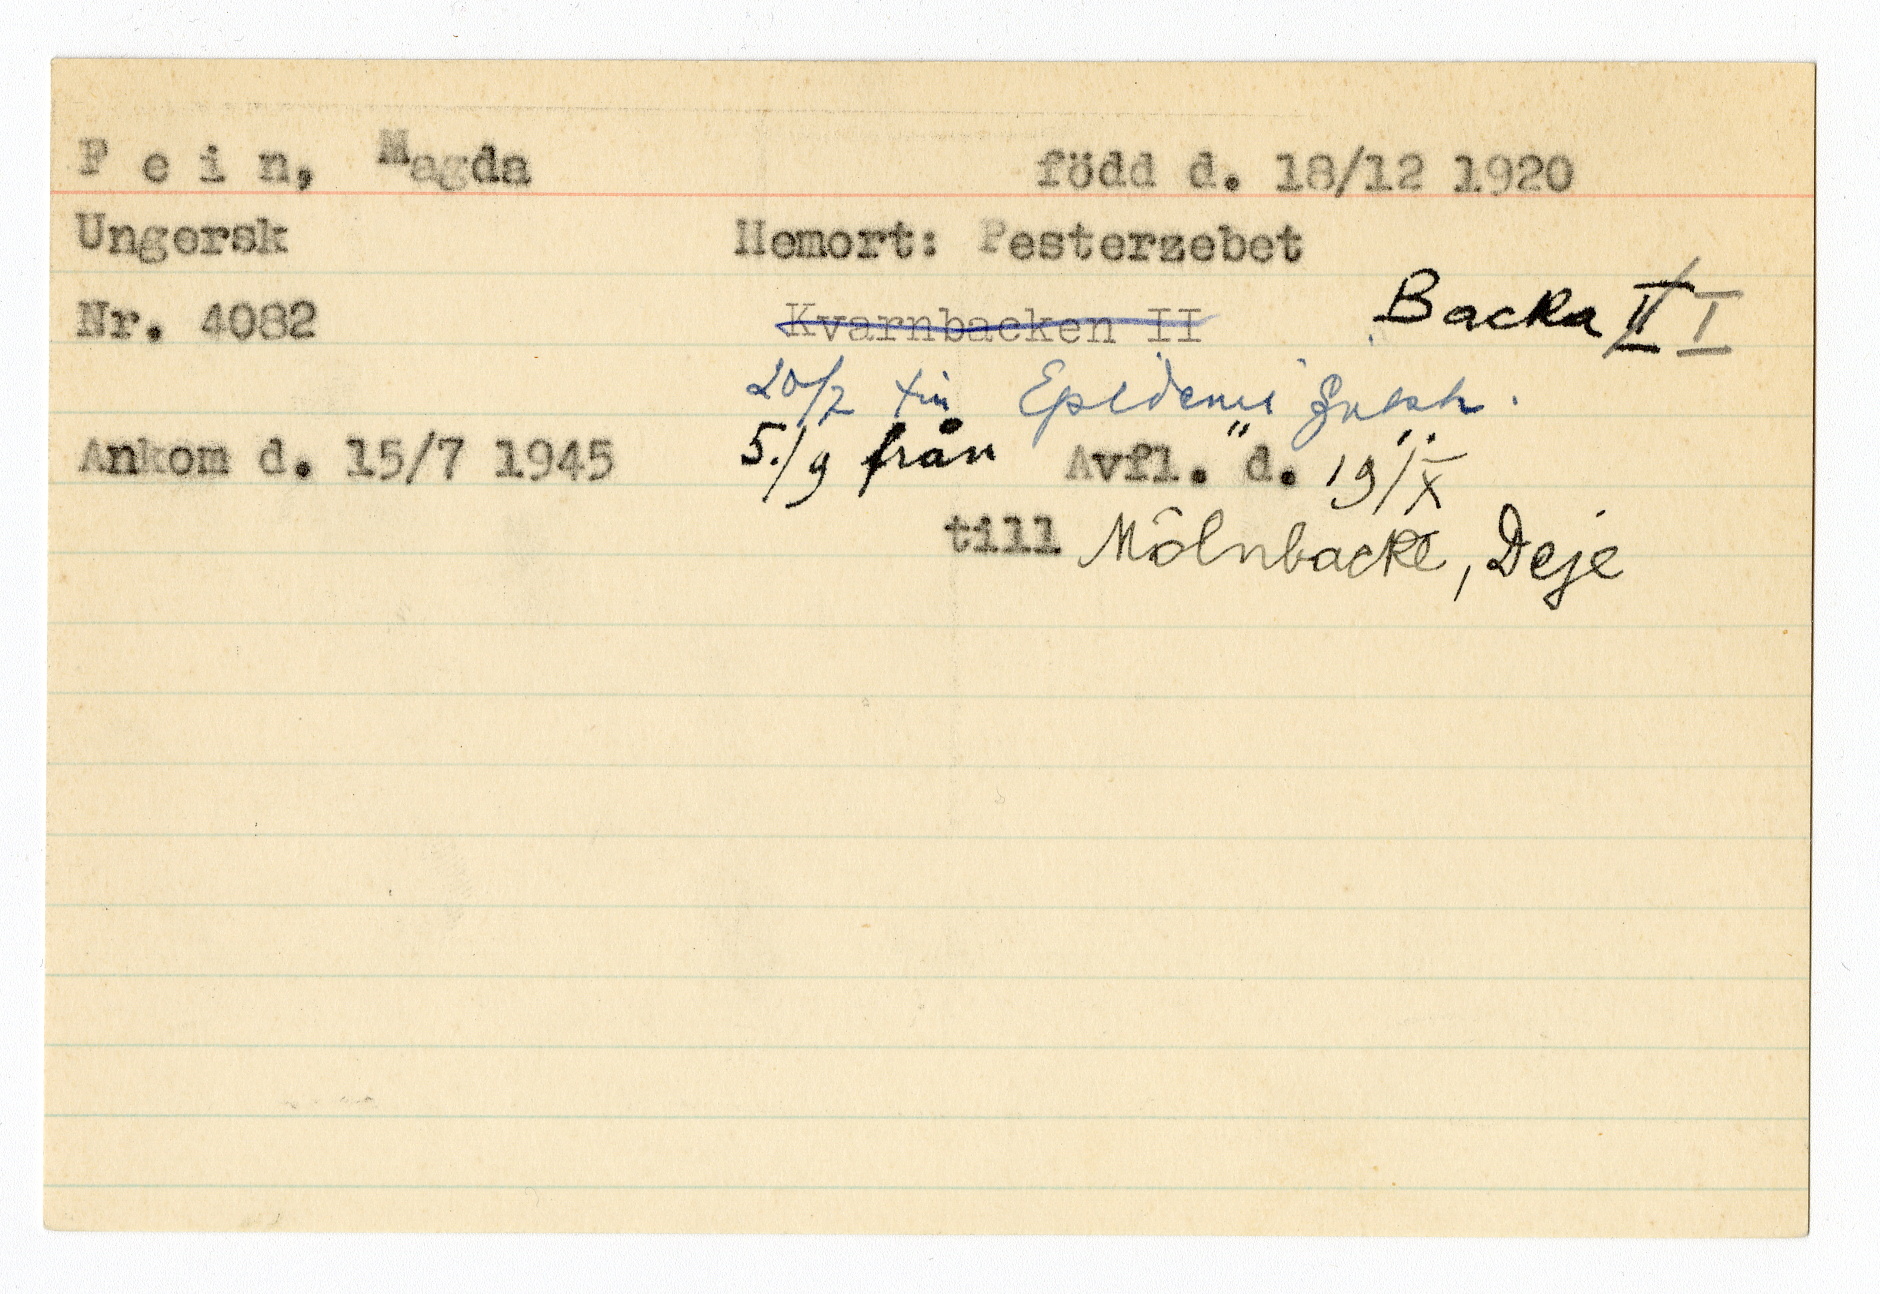 F e i n, Magda född d. 18/12 1920
Ungersk Hemort: Pesterzebet
Nr. 4082 Kvarnbacken II Backa II I
20/7 till Epidemi
Ankom d. 15/7 1945 5./9 från " Avfl. d. 19/IX "
till Mölnbacke, Deje